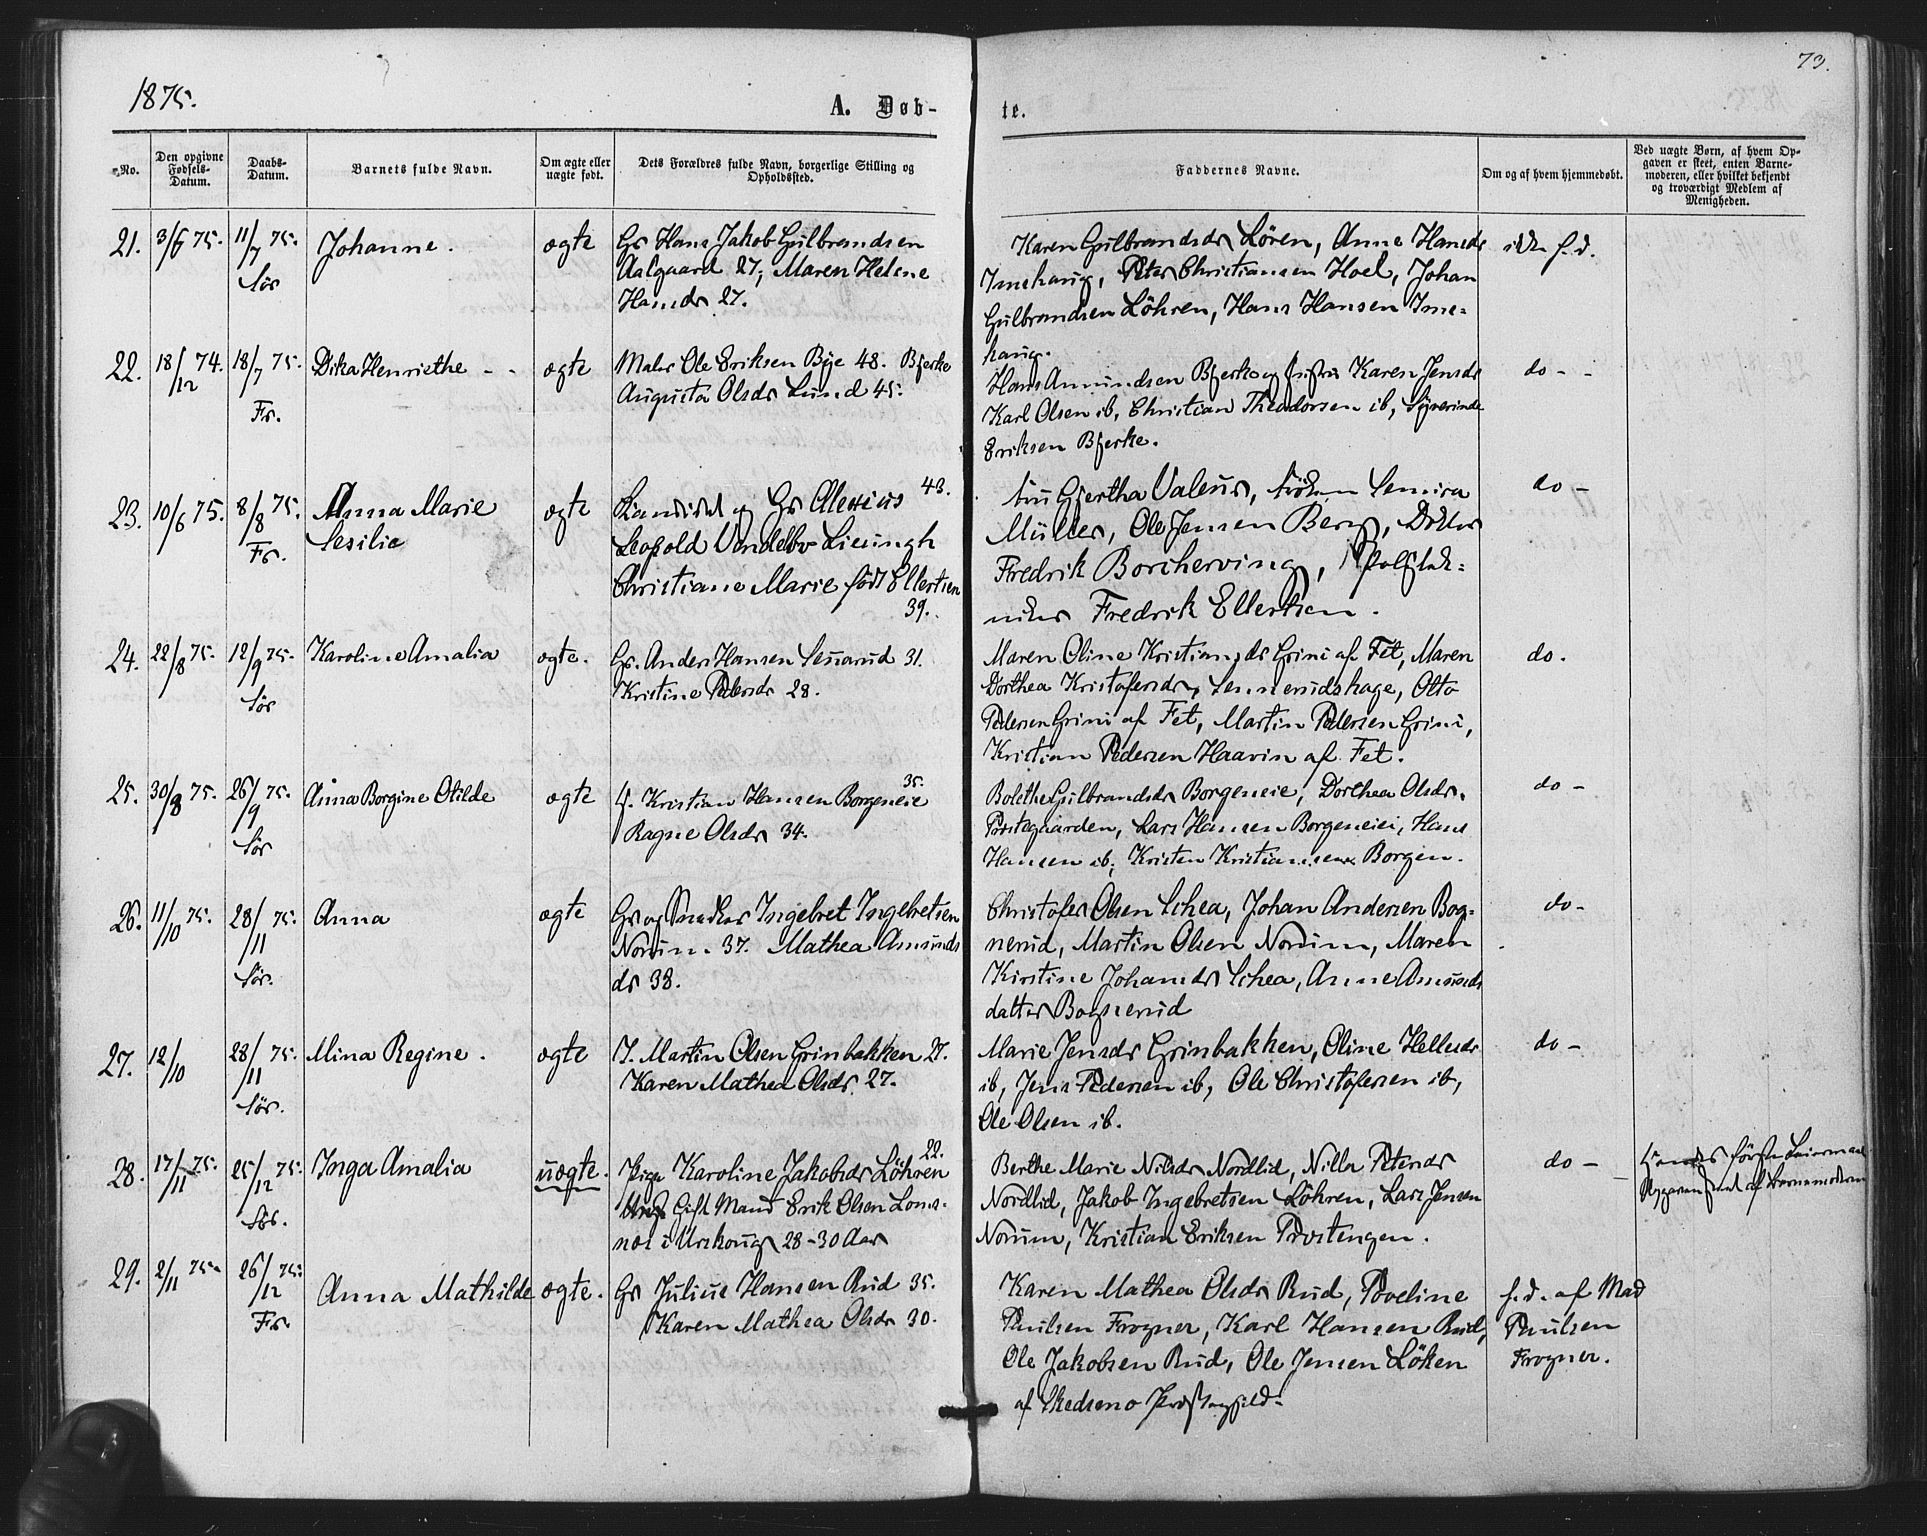 73.
1875.
A. Døb-
te.
No.
Den opgivne Fødsels-Datum.
Daabs-Datum.
Barnets fulde Navn.
Om ægte eller uægte født.
Dets Forældres fulde Navn, borgerlige Stilling og Opholdssted.
Faddernes Navne.
Om og af hvem hjemmedøbt.
Ved uægte Børn, af hvem Op-
gaven er skeet, enten Barne-
moderen, eller hvilket bekjendt
og troværdigt Medlem af
Menigheden.
21. 3/6 75. 11/7 75. Sør Johanne. ægte
Gr Hans Jakob Gulbrandsen
Aalgaard 27; Maren Helene
Hansdr 27.
Karen Gulbrandsdr Lören, Anne Hansdr
Imehaug, Peter Christiansen Hoel, Johan
Gulbrandsen Löhren, Hans Hansen Ime-
haug.
ikke h.d.
22. 18/12 74. 18/7 75. Fr. Dika Henriethe - - ægte
Maler Ole Eriksen Bye 48. Bjerke
Augusta Olsdr Lund 45.
Hans Amundsen Bjerke og Karen Jensdr
Karl Olsen ib, Christian Theodorsen ib, Syverinde
Eriksen Bjerke.
do - -
23. 10/6 75. 8/8 75. Fr. Anna Marie
Sesilie
ægte
og Gr Alexius 43.
Leopold Vendelbo Lieungh
Christiane Marie født Ellertsen
39.
Gjertha Valeur, Frøken
Müller, Ole Jensen Berg, Doktor
Fredrik Borchervinq, Polytek-
niker Fredrik Ellertsen.
do -
24. 22/8 75. 12/9 75. Sør Karoline Amalia ægte.
Gr. Anders Hansen Sennerud 31.
Kristine Pedersdr 28.
Maren Oline Kristiansdr Grini af Fet, Maren
Dorthea Kristofersdr, Sennerudshage, Otto
Pedersen Grini af Fet, Martin Pedersen Grini,
Kristian Pedersen Haavin af Fet.
do.
25. 30/8 75. 26/9 75. Sør Anna Borgine Otilde ægte
Kristian Hansen Borgeneie 35.
Ragne Olsdr 34.
Bolethe Gulbrandsdr Borgeneie, Dorthea Olsdr.
Prestegaarden, Lars Hansen Borgeneiei, Hans
Hansen ib, Kristen Kristiansen Borgen.
do -
26. 11/10 75. 28/11 75. Sør. Anna ægte
Gr og Snedker Ingebret Ingebretsen
Norum. 37. Mathea Amunds
dr 38.
Christofer Olsen Schea, Johan Andersen Bog-
nerud, Martin Olsen Norum, Maren
Kirstine Johansdr Schea, Anne Amunds
datter Bognerud
do -
27. 12/10 28/11 75. Sør. Mina Regine. ægte
I. Martin Olsen Grinbakken 27.
Karen Mathea Olsdr 27.
Marie Jensdr Grinbakken, Oline Hellesdr
ib, Jens Pedersen ib, Ole Christofersen ib,
Ole Olsen ib.
do -
28. 17/11 75. 25/12 75. Sør. Inga Amalia uægte.
Pige Karoline Jakobsdr Löhren 22.
Gift Mand Erik Olsen Loms-
nes i Urskoug 28-30 Aar
Berthe Marie Nilsdr Nordlid, Nilla Petersdr
Nordlid, Jakob Ingebretsen Löhren, Lars Jensen
Norum, Kristian Eriksen Prestengen.
do -
første Leiermaal
af Barnemoderen
29. 2/11 75. 26/12 75. Fr. Anna Mathilde ægte.
Gr Julius Hansen Rud 35.
Karen Mathea Olsdr 30.
Karen Mathea Olsdr Rud, Poveline
Paulsen Frogner, Karl Hansen Rud,
Ole Jakobsen Rud, Ole Jensen Löken
af Skedsmo Præstegjeld.
h.d. af Mad
Paulsen
Frogner.